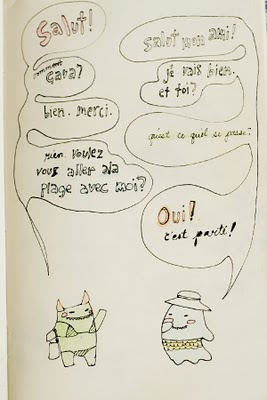 Salut!
Salut mon ami!
comment
çava?
je vais bien.
et toi?
bien. merci.
qu'est ce quel se passe?
rien. voulez
vous aller ala
plage avec moi?
Oui!
c'est parti!